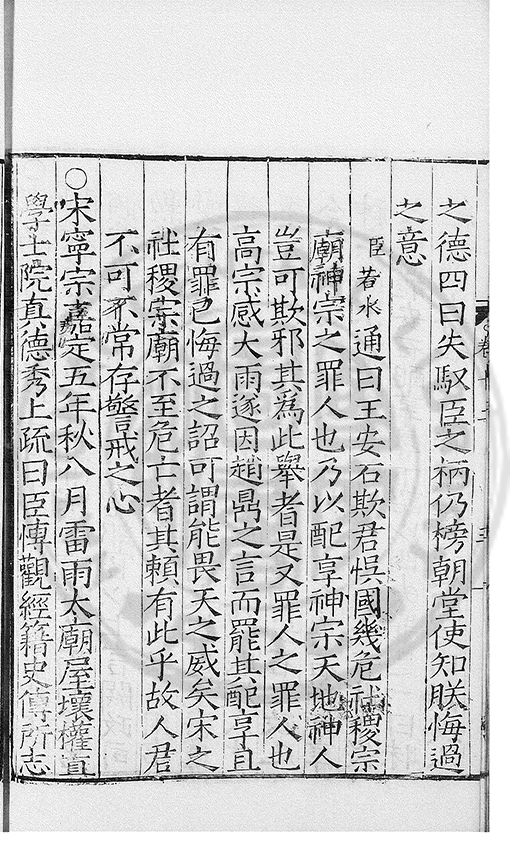 之德四曰失馭臣之柄仍榜朝堂使知朕悔過
之意
臣若水通曰王安石欺君悞國幾危社稷宗
廟神宗之罪人也乃以配享神宗天地神人
豈可欺邪其爲此舉者是又罪人之罪人也
高宗感大雨遂因趙鼎之言而罷其配享且
有罪已悔過之詔可謂能畏天之威矣宋之
社稷宗廟不至危亡者其賴有此乎故人君
不可不常存警戒之心
○宋寧宗嘉定五年秋八月雷雨太廟屋壞權直
學士院真德秀上疏曰臣愽觀經籍史傳所志